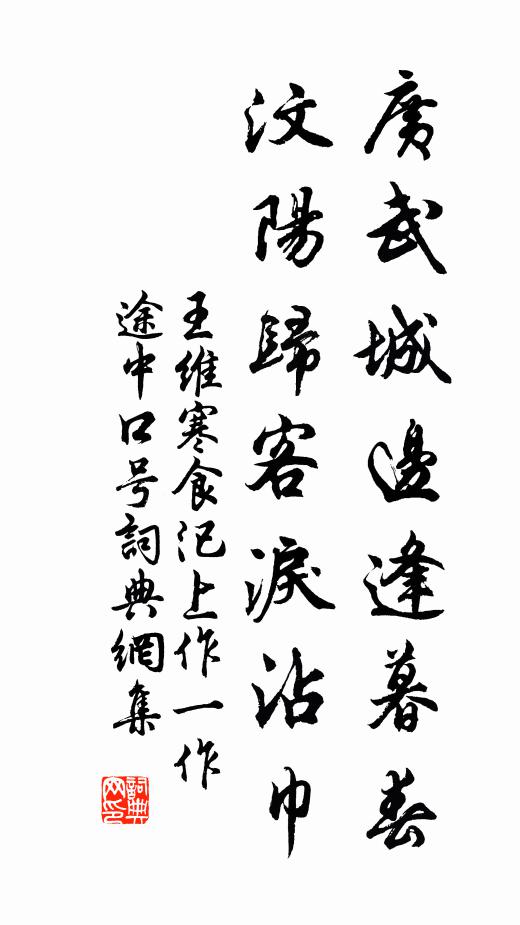 廣武城邊逢暮春
汶陽歸客淚沾巾
王維寒食汜上作一作
途中口号詞典網集
詞典网印